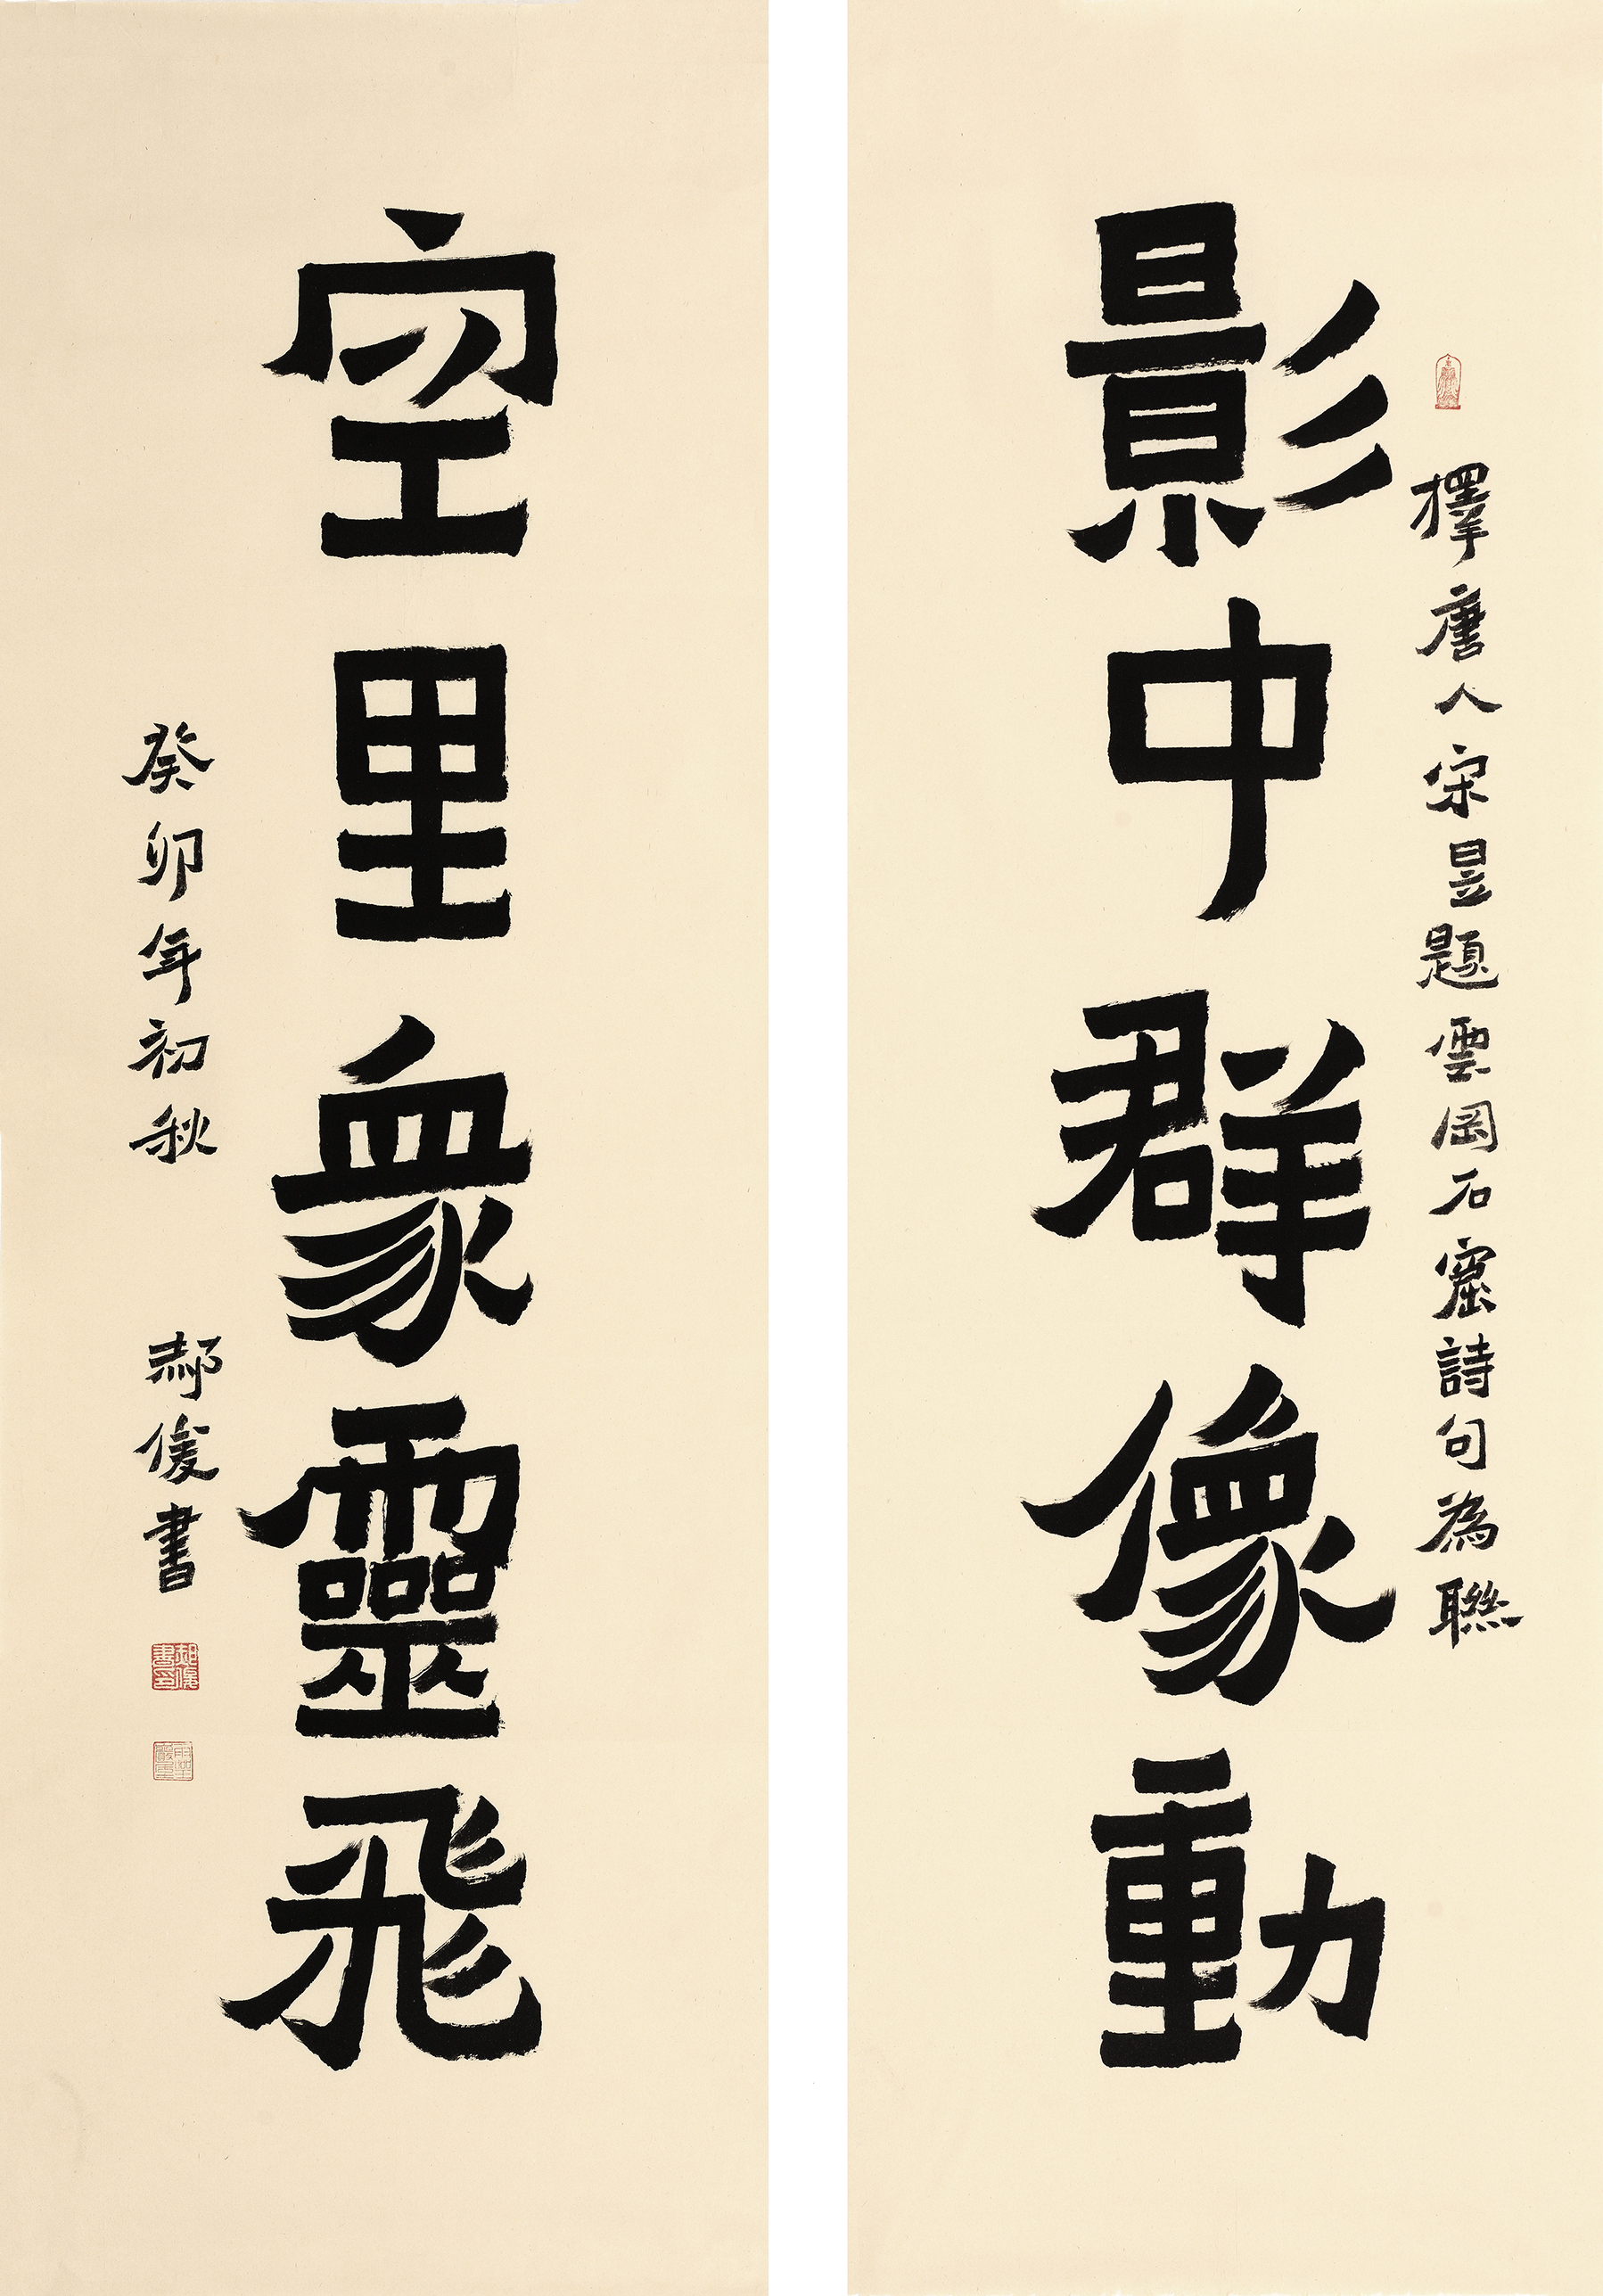 擇唐人宋昱題雲岡石窟詩句為聯
影中群像動
空里衆靈飛
癸卯年初秋
郝俊書